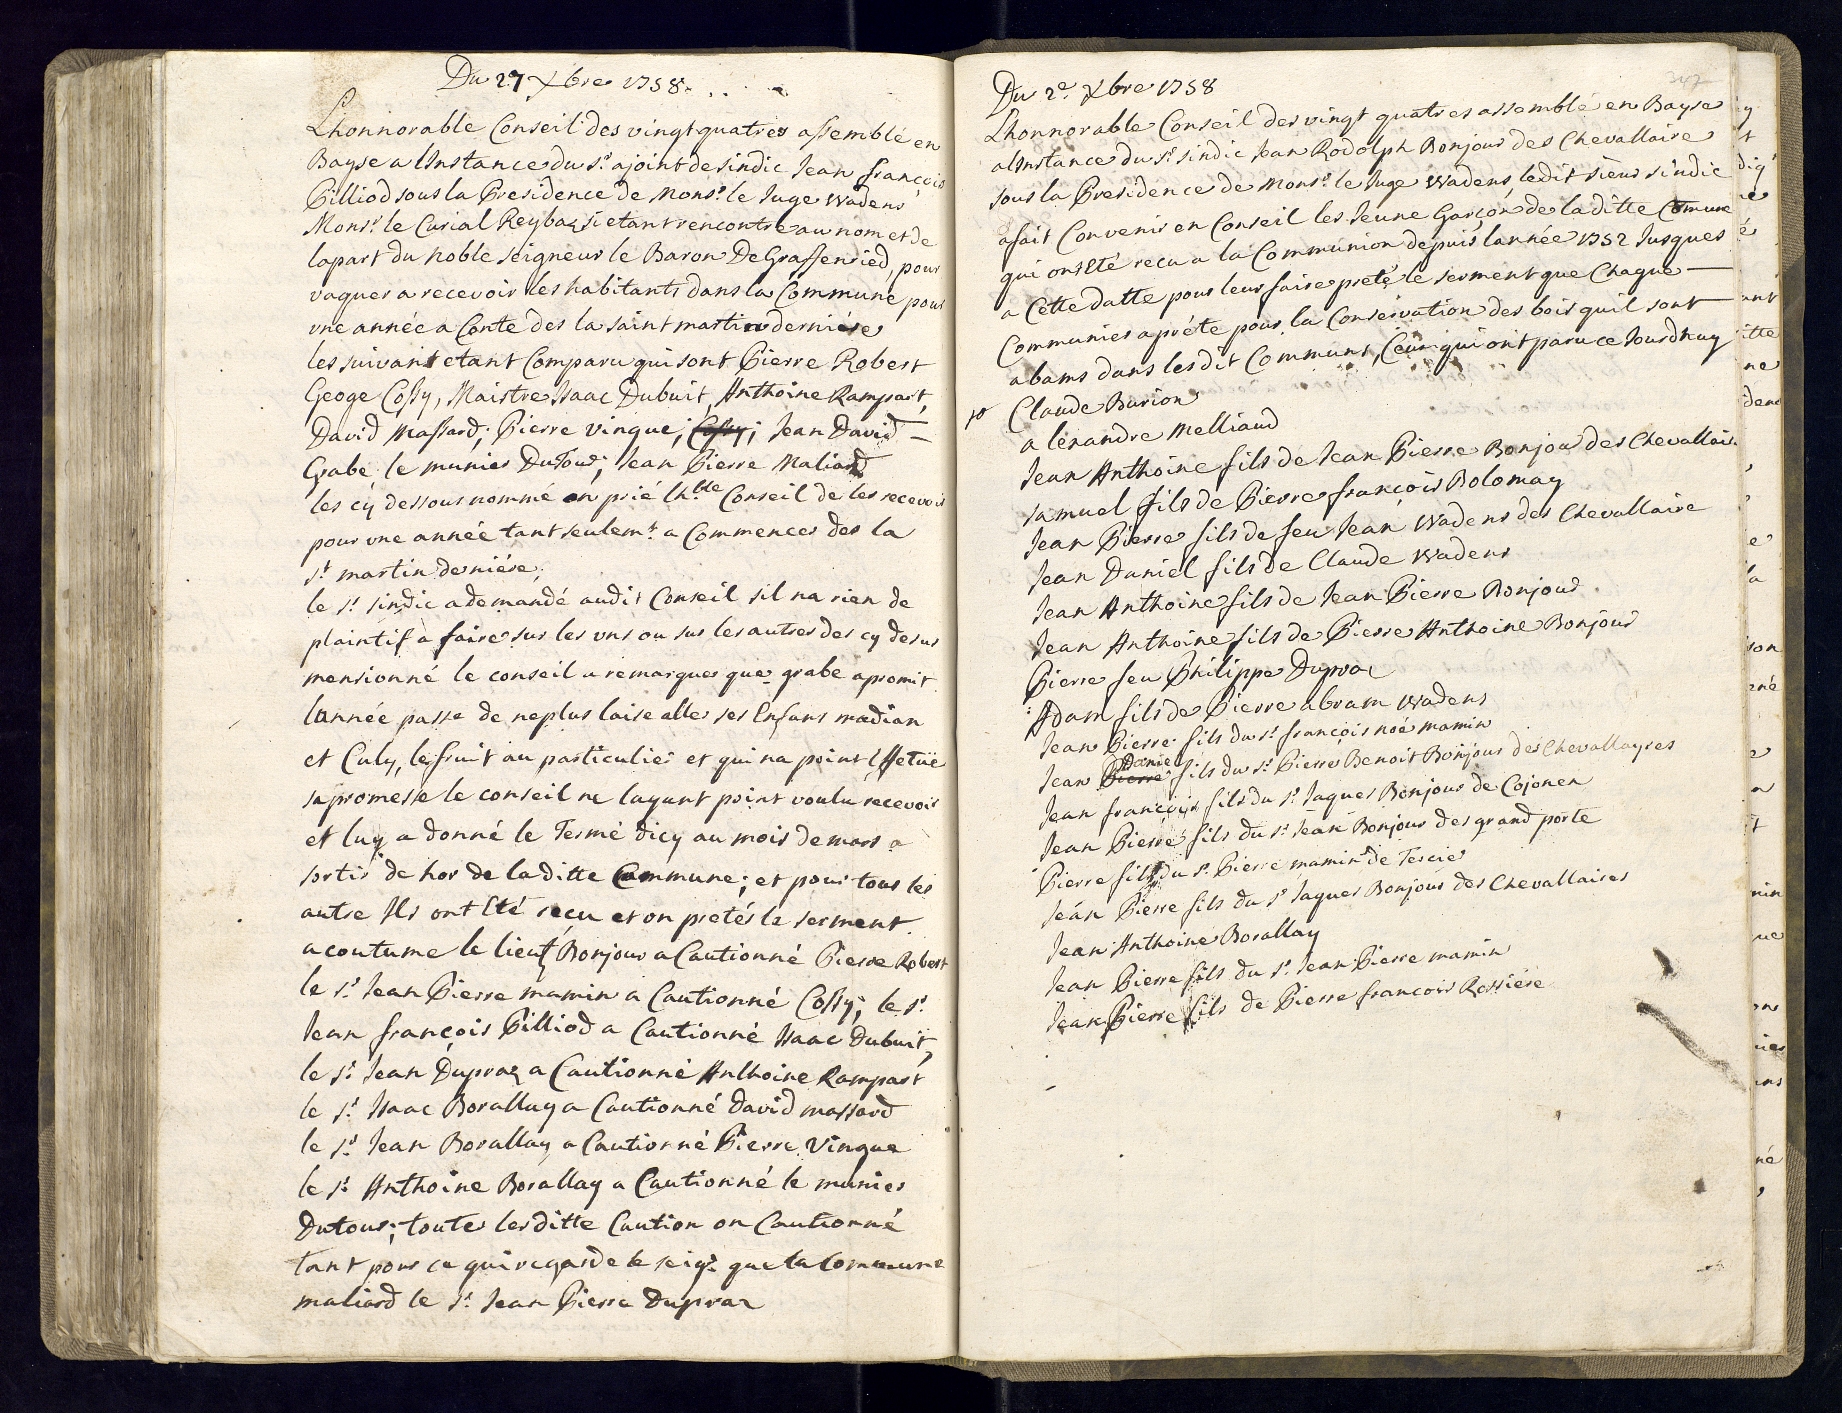 Du 27 Xbre 1758. . .
Lhonnorable Conseil des vingt quatres assemblé en
Bayse a lInstance du Sr ajoint de sindic Jean françois
Pilliod sous la Presidence de Monsr. le Juge Wadens
Monsr. le Curial Reybaz si etant rencontre au nom et de
la part du Noble Seigneur le Baron De Graffenried, pour
vaquer a recevoir les habitants dans la Commune pour
vne année a Conte des la saint martin derniére
les suivant etant Comparu qui sont Pierre Robert
Geoge Cossy, Maistre Isaac Dubuit, Anthoine Rampart,
David Massard, Pierre vinque, Cossy; Jean David
Grabe, le munier Dutour, Jean Pierre Maliard
les cy dessous nommé on prié lhble Conseil de les recevoir
pour vne année tant seulemt. a Commencer des la
st martin derniére,
le sr. sindic a demandé audit Conseil sil na rien de
plaintif a faire sur les vns ou sur les autres des cy desus
mensionné le conseil a remarquer que grabe a promit
lannée passe de ne plus laise aller ses Enfans madian
et Culy, le fruit au particulier et qui na point Effetuë
sa promesse le conseil ne layant point voulu recevoir
et luy a donné le Termé dicy au mois de mars a
sortir de hor de la ditte Commune; et pour tous les
autre Ils ont Eté reçu et on pretés le serment
acoutume le lieut Bonjour a Cautionné Pierre Robert
le sr. Jean Pierre mamin a Cautionné Cossy; le sr.
Jean françois Pilliod a Cautionné Isaac Dubuit,
le sr. Jean Dupraz a Cautionné Anthoine Rampart
le sr. Isaac Borallay a Cautionné david massard
le sr. Jean Borallay a Cautionné Pierre Vinque
le sr. Anthoine Borallay a Cautionné le munier
Dutour; toutes les ditte Caution on Cautionné
tant pour ce qui regarde le seigr. que la Commune
maliard le sr. Jean Pierre Dupraz
347
Du 2e. Xbre 1758
Lhonnorable Conseil des vingt quatres assemblé en Bayse
a lInstance du Sr. sindic Jean Rodolph Bonjour des Chevallaire
sous la Presidence de Monsr. le Juge Wadens, le dit sieur sindic
a fait Convenir en Conseil les Jeune Garçon de la ditte Comune
qui ont Eté recu a la Communion depuis lannée 1752 Jusques
a Cette datte pour leur faire preté le serment que Chaque
Communier a préte pour la Conservation des bois quil sont
abams dans les dit Communs, Ceux qui ont paru ce Jourdhuy
Claude Burion
alexandre Melliaud
Jean Anthoine fils de Jean Pierre Bonjou des Chevallair
Samuel fils de Pierre françois Bolomay
Jean Pierre fils de feu Jean Wadens des Chevallaire
Jean Daniel fils de Claude Wadens
Jean Anthoine fils de Jean Pierre Bonjour
Jean Anthoine fils de Pierre Anthoine Bonjour
Pierre feu Philippe Dupraz
Adam fils de Pierre abram Wadens
Jean Pierre fils du sr. françois noé mamin
Jean Pierre Daniel fils du sr. Pierre Benoit Bonjour des Chevallayres
Jean françois fils du sr. Jaques Bonjour de Cojonex
Jean Pierre fils du sr. Jean Bonjour des grand porte
Pierre fils du sr. Pierre mamin de Tercie
Jean Pierre fils du sr Jaques Bonjour des Chevallaires
Jean Anthoine Borallay
Jean Pierre fils du sr. Jean Pierre mamin
Jean Pierre fils de Pierre francois Rossiére